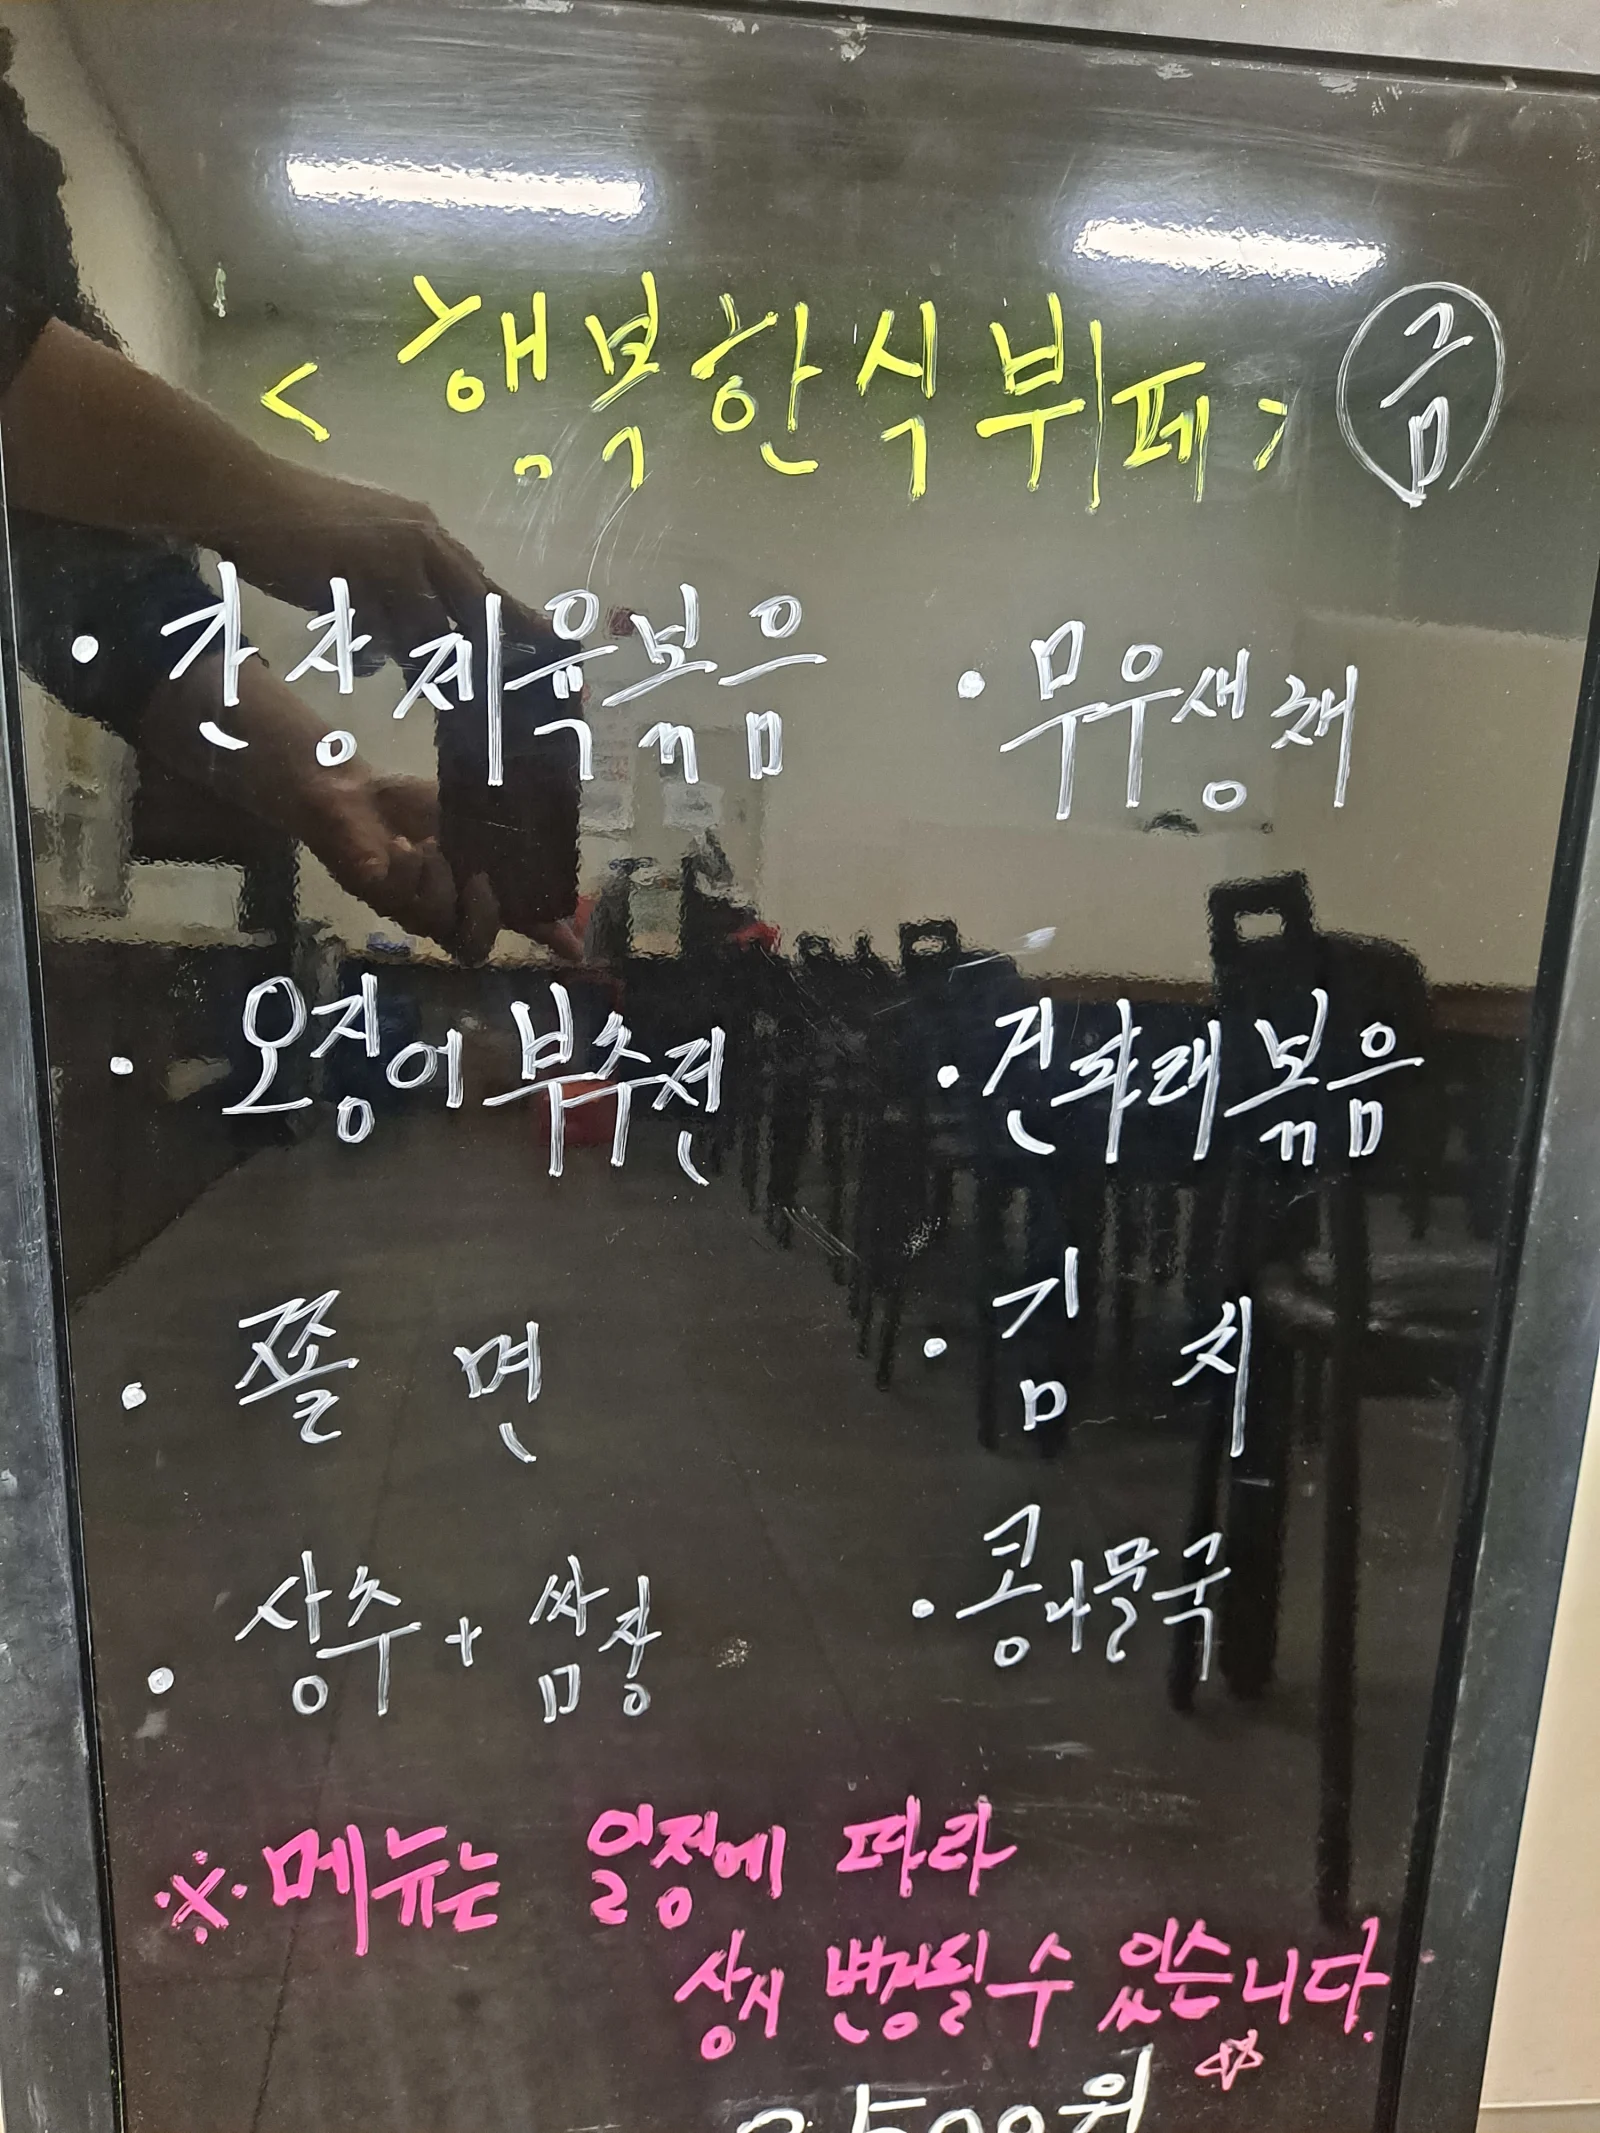 < 행복한식뷔페 > 금
· 간장제육볶음
· 무우생채
· 오징어부추전
· 건파래볶음
· 쫄면
· 김치
· 상추 + 쌈장
· 콩나물국
※ 메뉴는 일정에 따라
상시 변경될 수 있습니다.